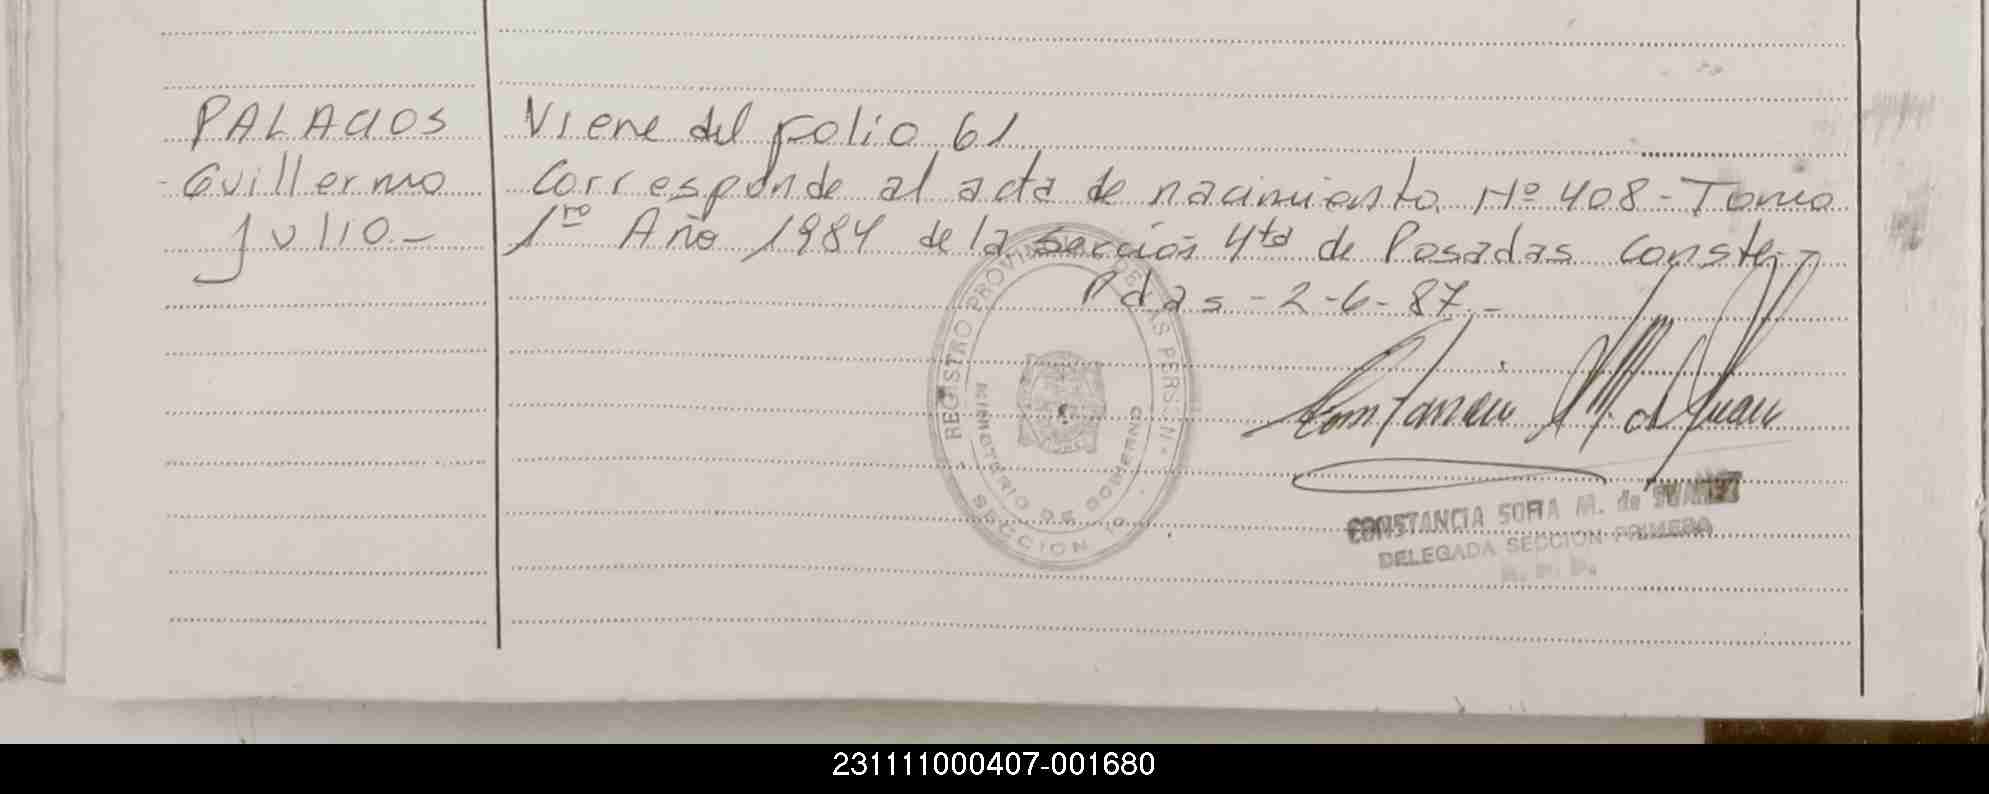 PALACIOS
Guillermo
Julio.-
Viene del folio 61
Corresponde al acta de nacimiento Nº 408 - Tomo
1ro Año 1984 de la sección 4ta de Posadas Conste,
Pdas - 2-6-87.-
REGISTRO PROVINCIAL DE LAS PERS.
MINISTERIO DE GOBIERNO
SECCION 1º
Constancia M. de Suarez
CONSTANCIA SOFIA M. de SUAREZ
DELEGADA SECCION PRIMERA
R. P. P.
231111000407-001680